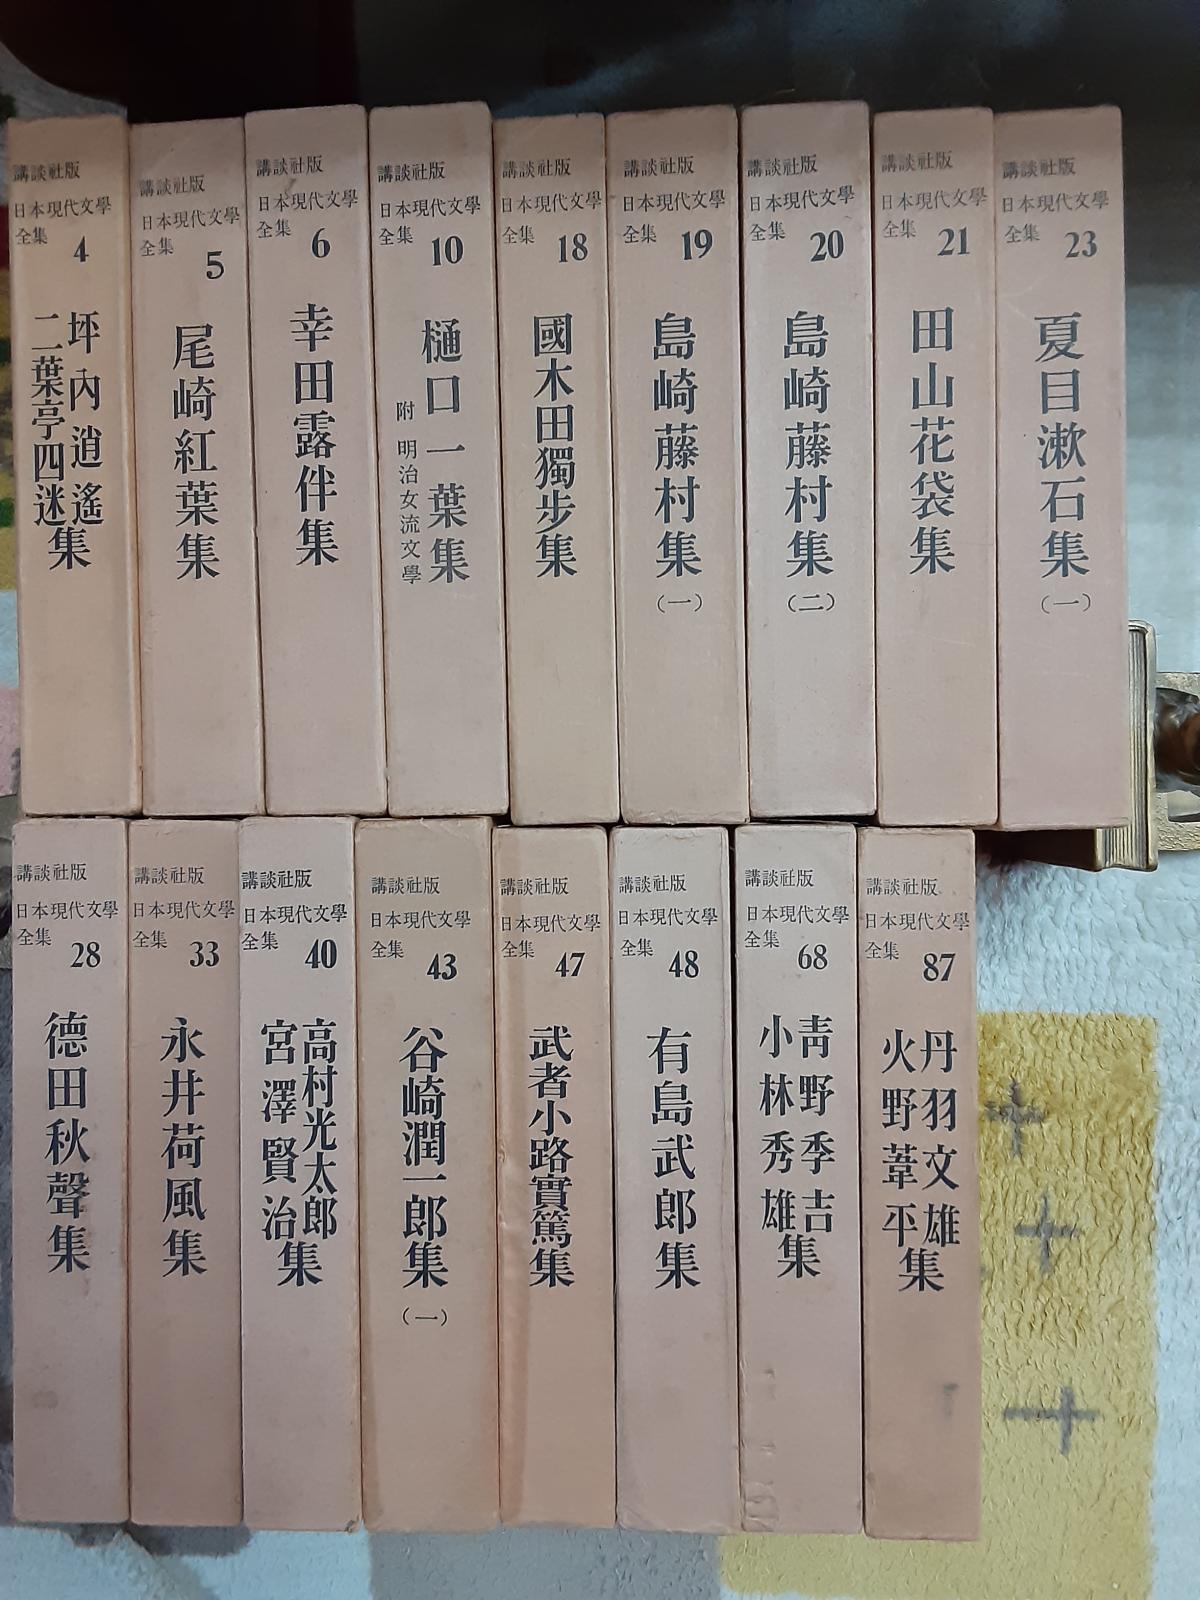 講談社版
日本現代文學
全集 4
坪內逍遙
二葉亭四迷
集
講談社版
日本現代文學
全集 5
尾崎紅葉集
講談社版
日本現代文學
全集 6
幸田露伴集
講談社版
日本現代文學
全集 10
樋口一葉集
附 明治女流文學
講談社版
日本現代文學
全集 18
國木田獨步集
講談社版
日本現代文學
全集 19
島崎藤村集
(一)
講談社版
日本現代文學
全集 20
島崎藤村集
(二)
講談社版
日本現代文學
全集 21
田山花袋集
講談社版
日本現代文學
全集 23
夏目漱石集
(一)
講談社版
日本現代文學
全集 28
德田秋聲集
講談社版
日本現代文學
全集 33
永井荷風集
講談社版
日本現代文學
全集 40
高村光太郎
宮澤賢治
集
講談社版
日本現代文學
全集 43
谷崎潤一郎集
(一)
講談社版
日本現代文學
全集 47
武者小路實篤集
講談社版
日本現代文學
全集 48
有島武郎集
講談社版
日本現代文學
全集 68
靑野季吉
小林秀雄
集
講談社版
日本現代文學
全集 87
丹羽文雄
火野葦平
集